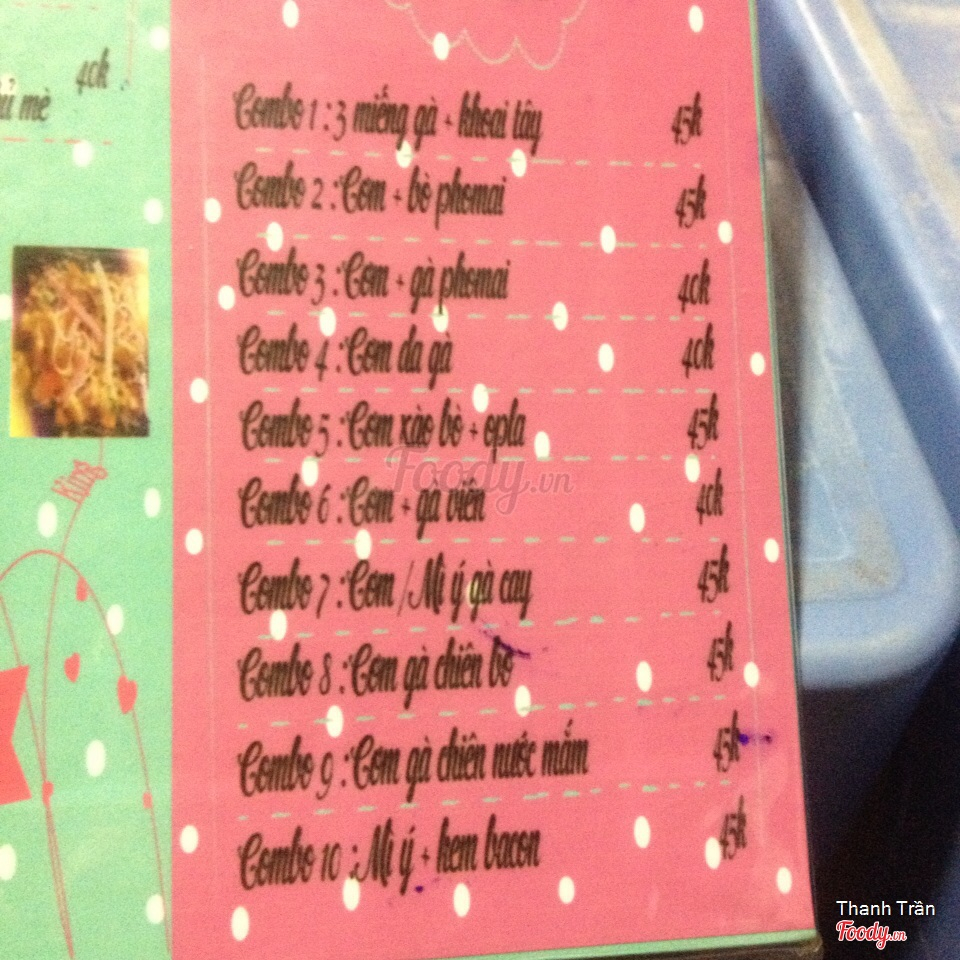 40k
ủ mè
King
Combo 1 : 3 miếng gà + khoai tây 45k
Combo 2 : Cơm + bò phomai 45k
Combo 3 : Cơm + gà phomai 40k
Combo 4 : Cơm da gà 40k
Combo 5 : Cơm xào bò + opla 45k
Combo 6 : Cơm + gà viên 40k
Combo 7 : Cơm / Mì ý gà cay 45k
Combo 8 : Cơm gà chiên bơ 45k
Combo 9 : Cơm gà chiên nước mắm 45k
Combo 10 : Mì ý + kem bacon 45k
Foody.vn
Thanh Trần
Foody.vn